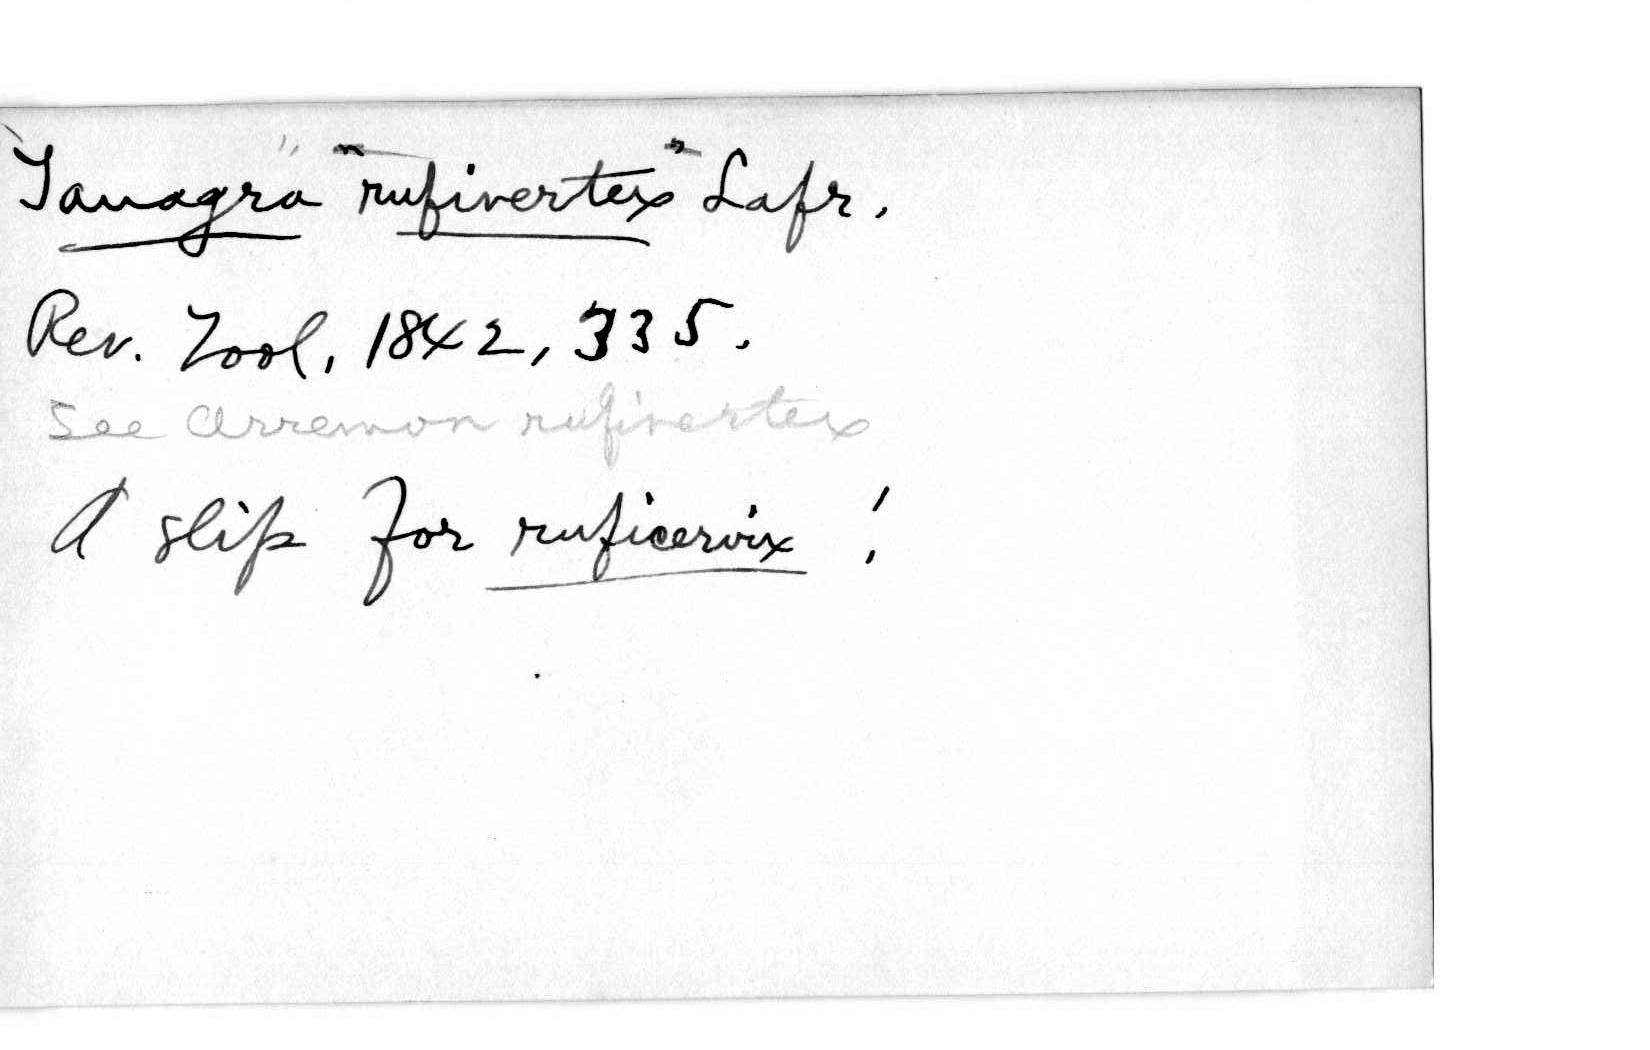 "Tanagra" "rufivertex" Lafr.
Rev. Zool, 1842, 335.
See Arremon rufivertex
A slip for ruficervix!